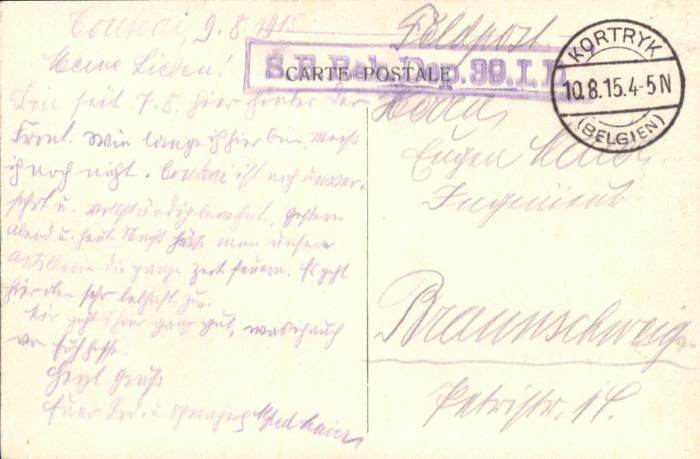 Courtrai, 9.8.1915
Meine Lieben!
Bin seit 7.8. hier hinter der
Front. Wie lange ich hier bin, weiß
ich noch nicht. Courtrai ist noch unver-
sehrt u. vollständig bewohnt, gestern
Abend u. heute Nacht hörte man unsere
Artillerie die ganze Zeit feuern. Es geht
hier oben sehr lebhaft zu.
Mir geht's hier ganz gut, was ich auch
von Euch hoffe.
Herzl. Gruß
Euer Bru. u. Schwager Alfred
Feldpost
S.B. Rek. Dep. 30. I. D.
CARTE POSTALE
KORTRYK
10.8.15.4-5N
(BELGIEN)
Herrn
Eugen
Ingenieur
Braunschweig
Petristr.